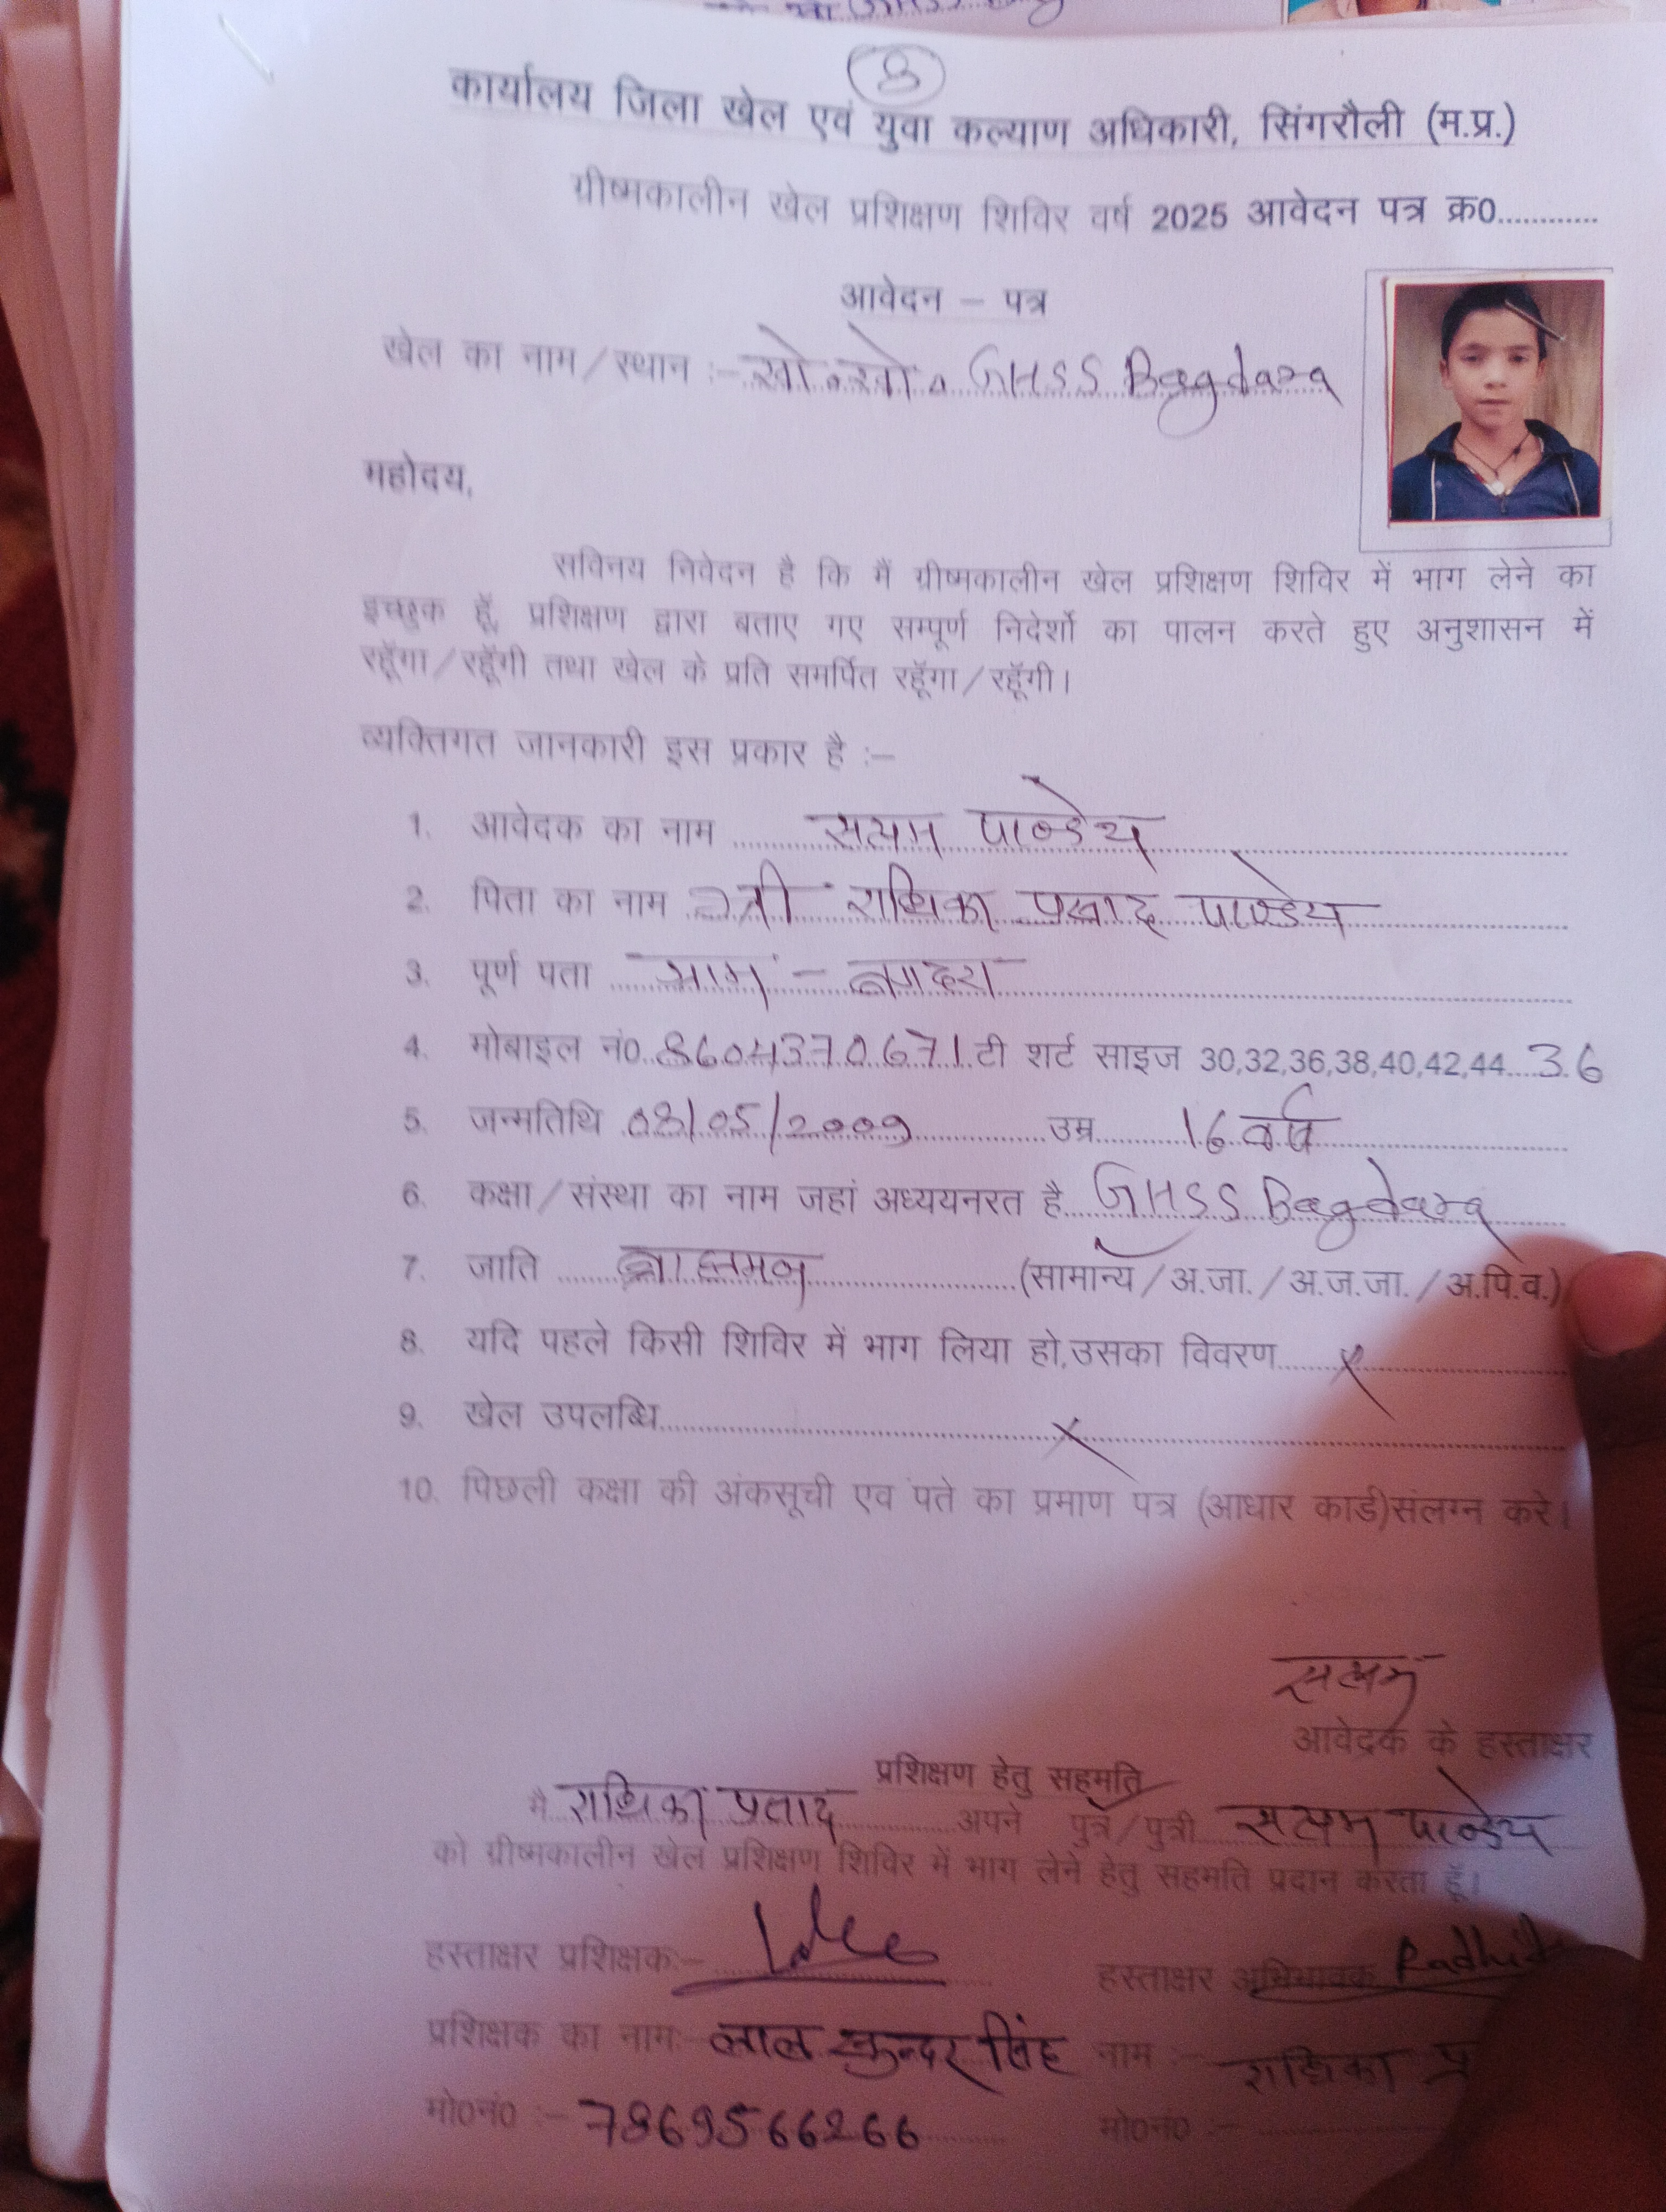 8
कार्यालय जिला खेल एवं युवा कल्याण अधिकारी, सिंगरौली (म.प्र.)
ग्रीष्मकालीन खेल प्रशिक्षण शिविर वर्ष 2025 आवेदन पत्र क्र0............
आवेदन – पत्र
खेल का नाम/स्थान :- खो. खो. GHSS Bagdara
महोदय,
सविनय निवेदन है कि मैं ग्रीष्मकालीन खेल प्रशिक्षण शिविर में भाग लेने का
इच्छुक हूँ, प्रशिक्षण द्वारा बताए गए सम्पूर्ण निदेर्शो का पालन करते हुए अनुशासन में
रहूँगा/रहूँगी तथा खेल के प्रति समर्पित रहूँगा/रहूँगी।
व्यक्तिगत जानकारी इस प्रकार है :–
1. आवेदक का नाम सत्यम पाण्डेय
2. पिता का नाम श्री राधिका प्रसाद पाण्डेय
3. पूर्ण पता ग्राम – बगदरा
4. मोबाइल नं0. 8604370671 टी शर्ट साइज 30,32,36,38,40,42,44....36
5. जन्मतिथि 08/05/2009 उम्र 16 वर्ष
6. कक्षा/संस्था का नाम जहां अध्ययनरत है GHSS Bagdara
7. जाति ब्राह्मण (सामान्य/अ.जा./अ.ज.जा./अ.पि.व.)
8. यदि पहले किसी शिविर में भाग लिया हो,उसका विवरण x
9. खेल उपलब्धि x
10. पिछली कक्षा की अंकसूची एव पते का प्रमाण पत्र (आधार कार्ड)संलग्न करे।
सत्यम
आवेदक के हस्ताक्षर
प्रशिक्षण हेतु सहमति
मै राधिका प्रसाद अपने पुत्र/पुत्री सत्यम पाण्डेय
को ग्रीष्मकालीन खेल प्रशिक्षण शिविर में भाग लेने हेतु सहमति प्रदान करता हूँ।
हस्ताक्षर प्रशिक्षक:– हस्ताक्षर अभिभावक
प्रशिक्षक का नाम:– लाल सुन्दर सिंह नाम :– राधिका प्र
मो0नं0 :– 7869566266 मो0नं0 :–